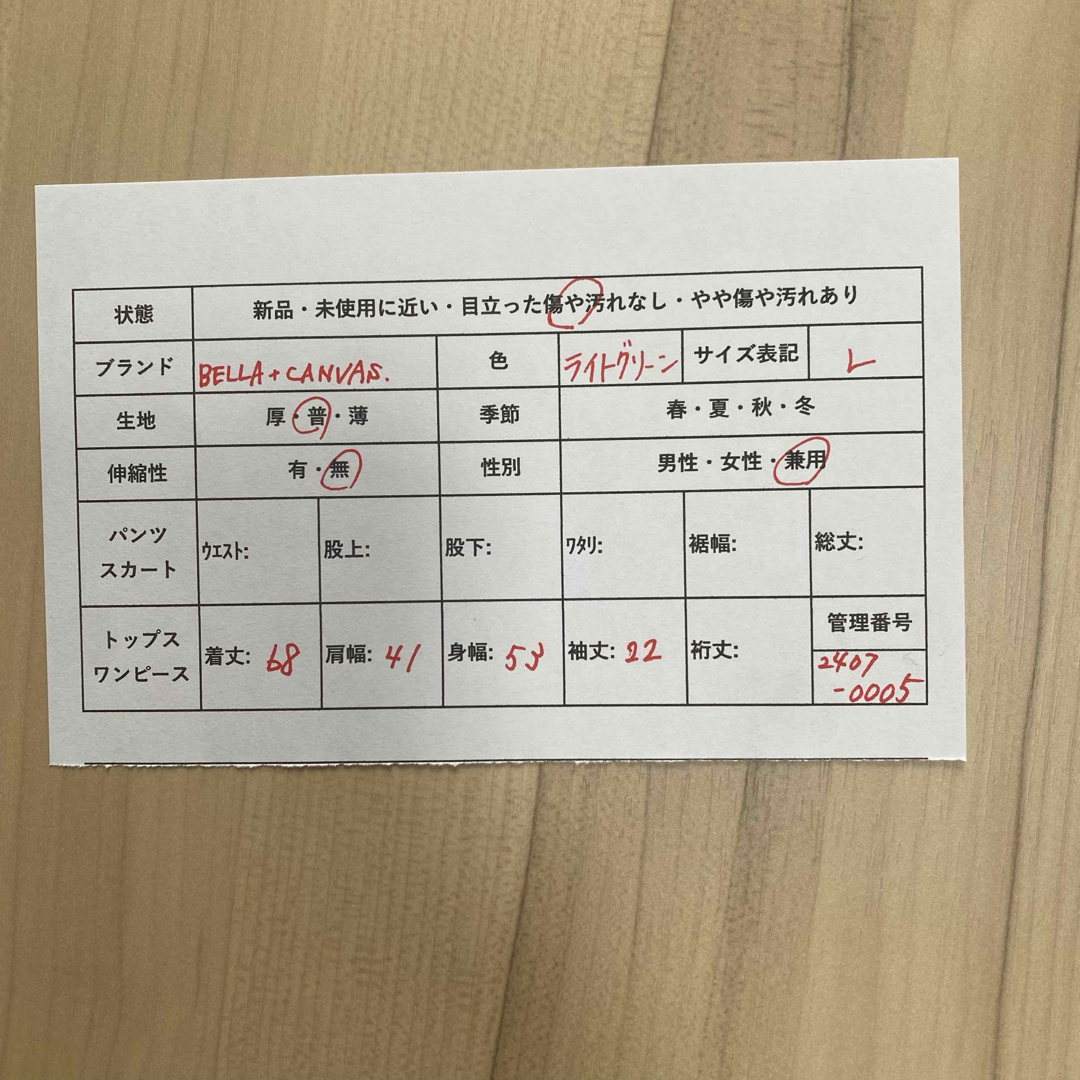 状態 新品・未使用に近い・目立った傷や汚れなし・やや傷や汚れあり
ブランド BELLA+CANVAS. 色 ライトグリーン サイズ表記 L
生地 厚・普・薄 季節 春・夏・秋・冬
伸縮性 有・無 性別 男性・女性・兼用
パンツ
スカート
ウエスト: 股上: 股下: ワタリ: 裾幅: 総丈:
トップス
ワンピース
着丈: 68 肩幅: 41 身幅: 53 袖丈: 22 裄丈:
管理番号
2407
-0005